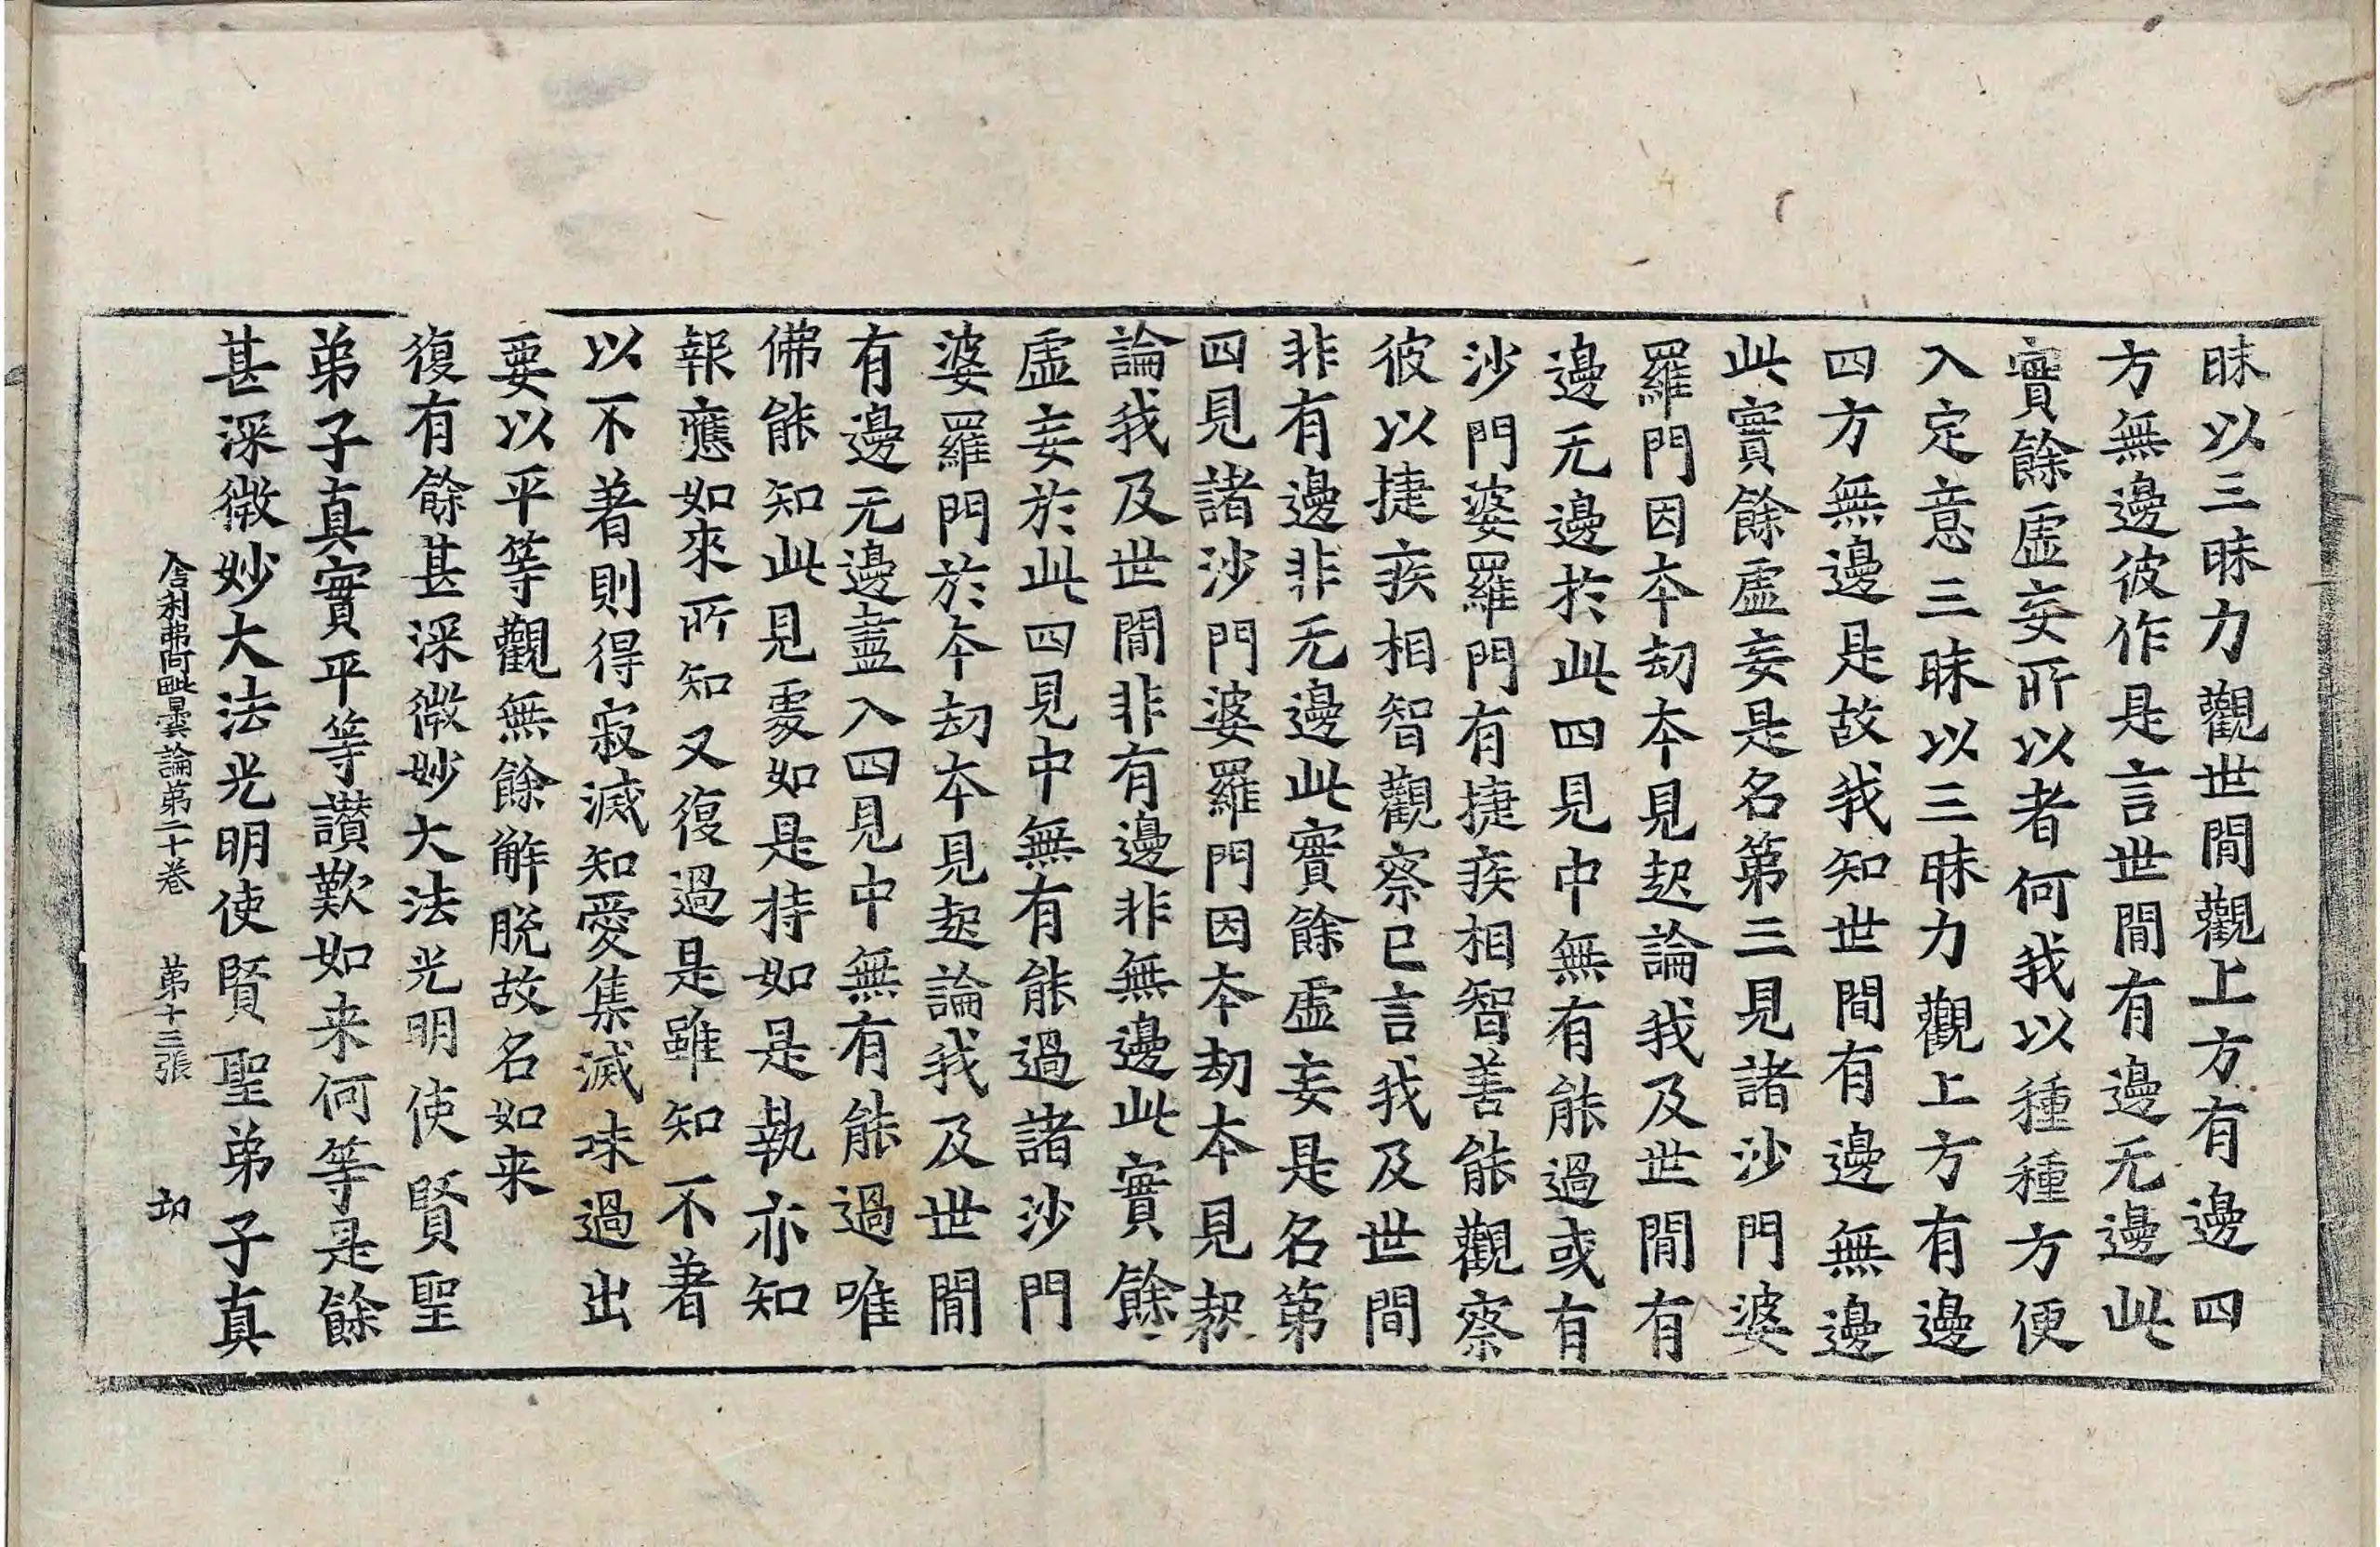 昧以三昧力觀世間觀上方有邊四
方無邊彼作是言世間有邊无邊此
實餘虛妄所以者何我以種種方便
入定意三昧以三昧力觀上方有邊
四方無邊是故我知世間有邊無邊
此實餘虛妄是名第三見諸沙門婆
羅門因本劫本見起論我及世間有
邊无邊於此四見中無有能過或有
沙門婆羅門有捷疾相智善能觀察
彼以捷疾相智觀察已言我及世間
非有邊非无邊此實餘虛妄是名第
四見諸沙門婆羅門因本劫本見起
論我及世間非有邊非無邊此實餘
虛妄於此四見中無有能過諸沙門
婆羅門於本劫本見起論我及世間
有邊无邊盡入四見中無有能過唯
佛能知此見處如是持如是執亦知
報應如來所知又復過是雖知不著
以不著則得寂滅知愛集滅味過出
要以平等觀無餘解脫故名如来
復有餘甚深微妙大法光明使賢聖
弟子真實平等讃歎如来何等是餘
甚深微妙大法光明使賢聖弟子真
舍利弗阿毗曇論第二十卷 第十三張